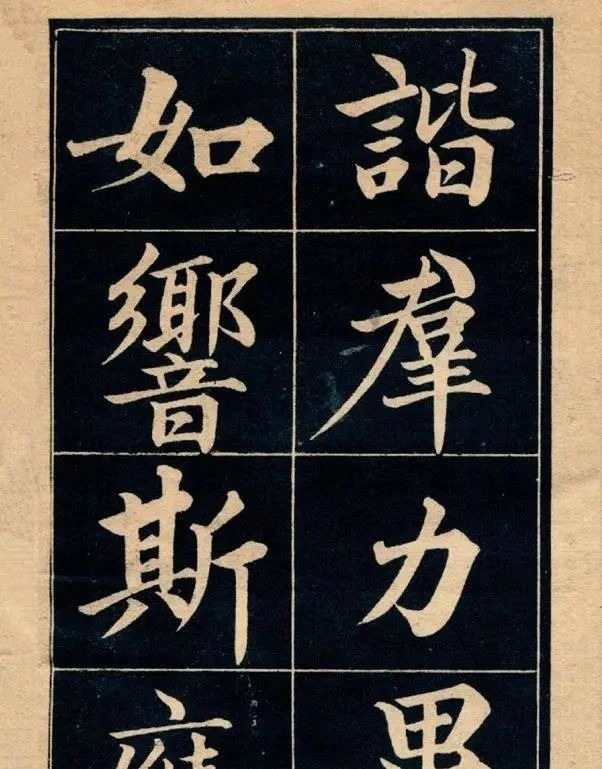 諧羣力
如響斯